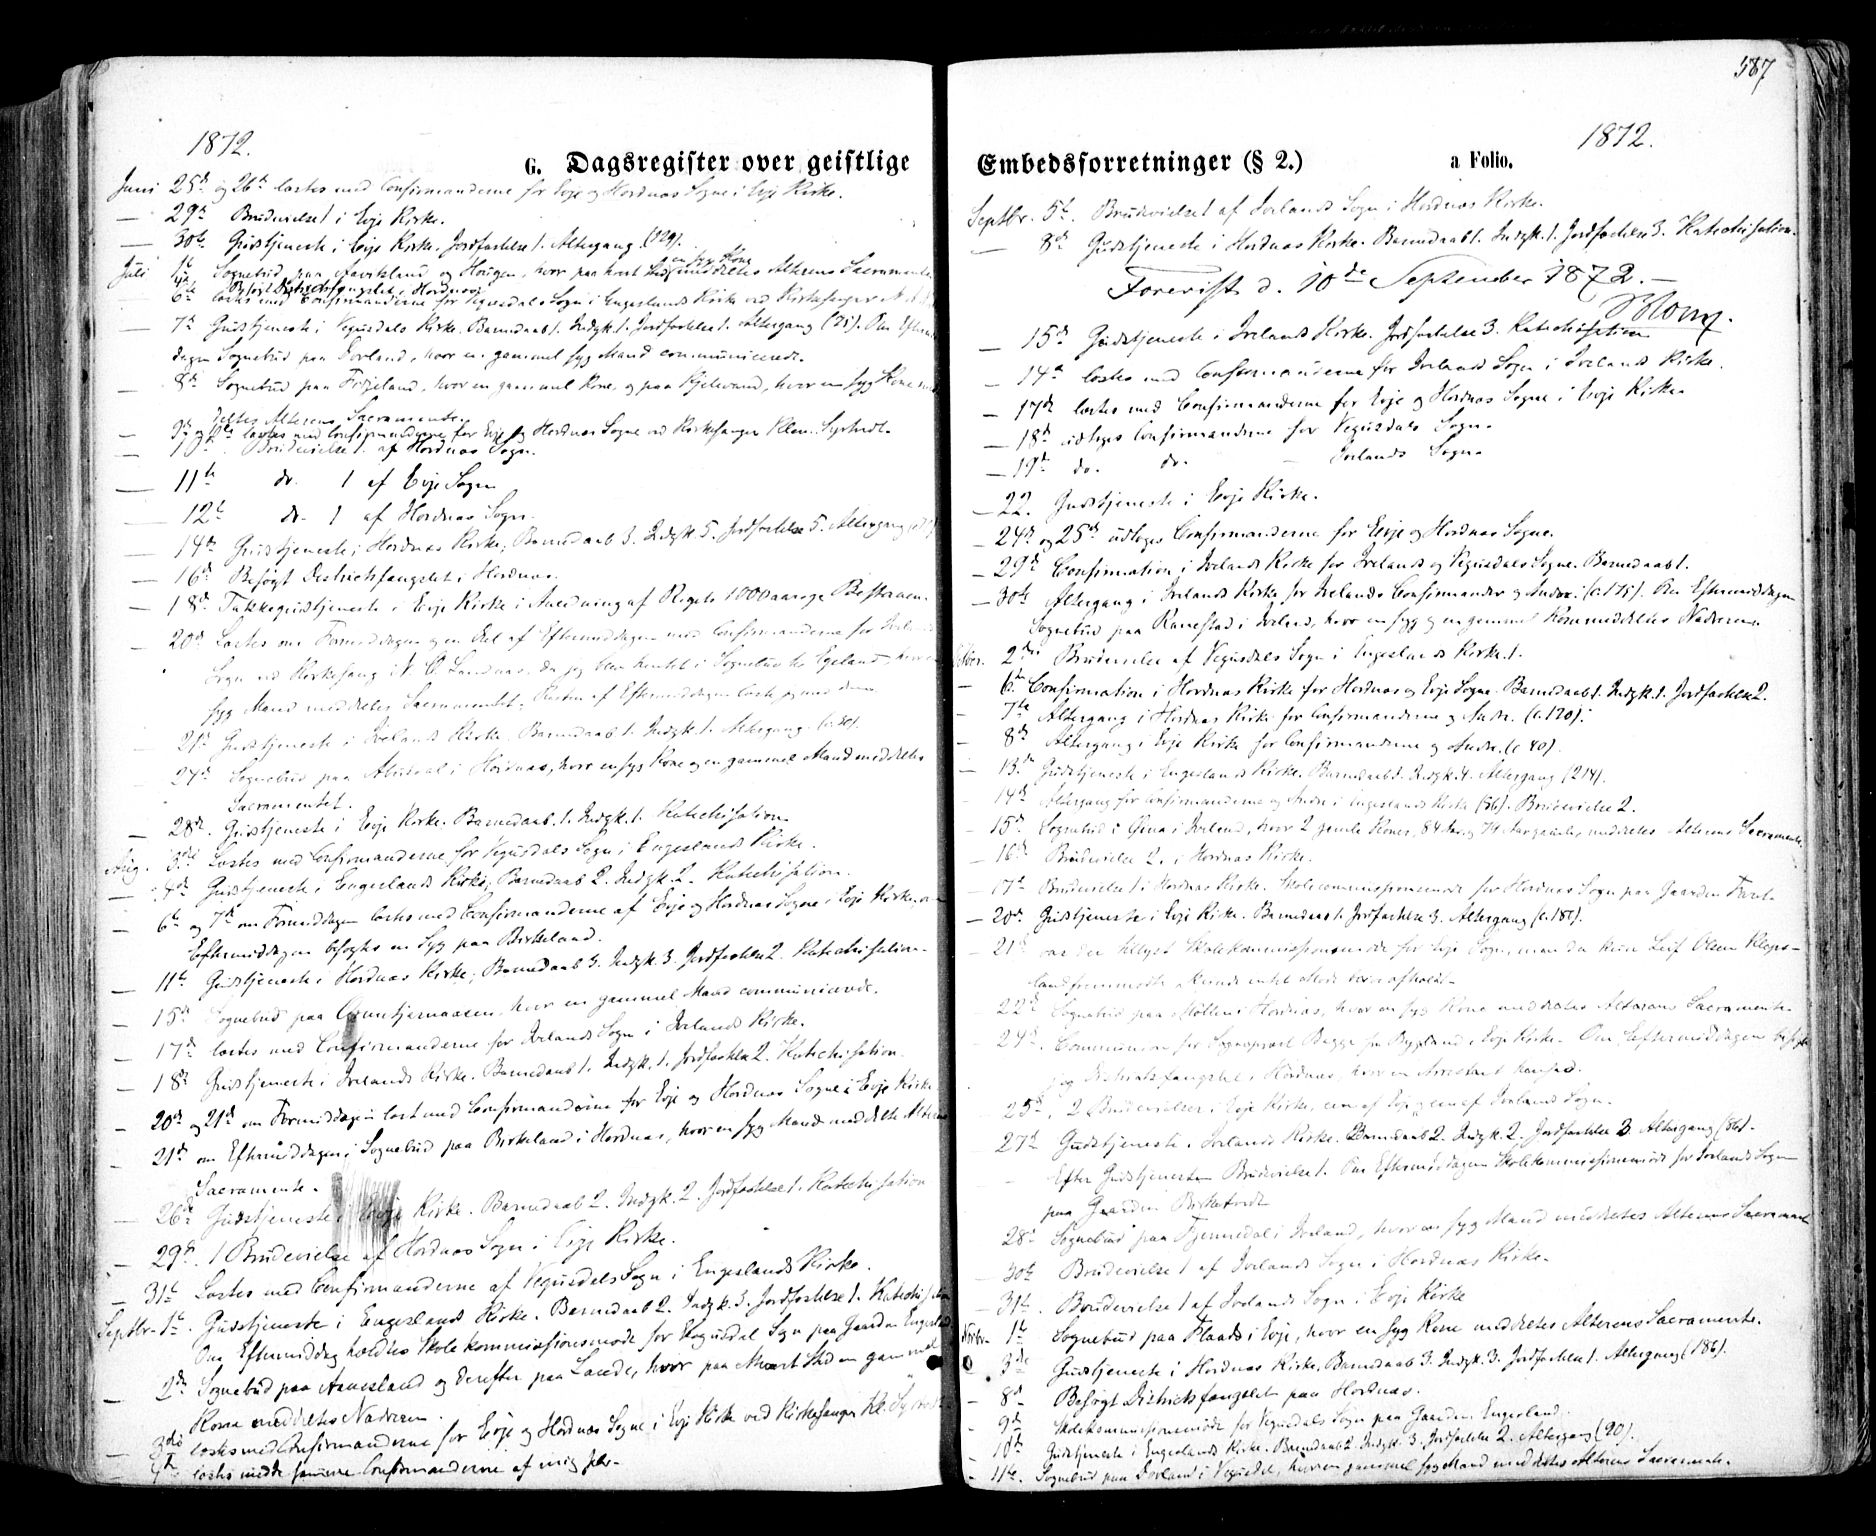 587
1872.
G. Dagsregister over geistlige
Juni 25de og 26de læstes med Confirmanderne for Evje og Hordnæs Sogne i Evje Kirke.
— 29de Brudevielse 1 i Evje Kirke.
— 30te Gudstjeneste i Evje Kirke. Jordfæstelse 1. Altergang (129).
Juli 1te Sognebud paa og Hougen, hvor paa hvert Sted en syg Kone meddeltes Alterens Sacramente
Besøgt Districtsfængslet i Hordnæs
6te læstes med Confirmanderne for Vegusdals Sogn i Engeslands Kirke ved Kirkesanger
7de Gudstjeneste i Vegusdals Kirke. Barnedaab 1. Indgk. 1. Jordfæstelse 1. Altergang (21). Om Efterm.
dagen Sognebud paa Dovland, hvor en gammel syg Mand communicerede.
8de Sognebud paa , hvor en gammel Kone, og paa , hvor en syg Kone med
deltes Alterens Sacramente.
9de og 10de læstes med Confirmanderne for Evje og Hordnæs Sogne ved Kirkesanger
— 10de Brudevielse 1 af Hordnæs Sogn.
— 11te do. 1 af Evje Sogn
— 12te do. 1 af Hordnæs Sogn.
— 14de Gudstjeneste i Hordnæs Kirke, Barnedaab 3. Indgk. 5. Jordfæstelse 5. Altergang
— 16de Besøgt Districtsfængslet i Hordnæs.
— 18de Takkegudstjeneste i Evje Kirke i Anledning af Rigets 1000aarige Bestaaen.
20de Læstes om Formiddagen og en Del af Eftermiddagen med Confirmanderne for
Sogn ved Kirkesang. , da jeg blev hentet i Sognebud til , hvor en
syg Mand meddeltes Sacramentet. Resten af Eftermiddagen læste jeg med dem
21de Gudstjeneste i Ivelands Kirke. Barnedaab 1. Indgk. 1. Altergang
27de Sognebud paa i Hordnæs, hvor en syg Kone og en gammel Mand meddeltes
Sacramentet.
— 28de Gudstjeneste i Evje Kirke. Barnedaab 1. Indgk. 1. Katechisation.
Aug. 3die Læstes med Confirmanderne for Vegusdals Sogn i Engeslands Kirke.
4de Gudstjeneste i Engeslands Kirke, Barnedaab 2. Indgk. 2. Katechisation.
— 6te og 7de om Formiddagen læstes med Confirmanderne af Evje og Hordnæs Sogne i Evje Kirke, om
Eftermiddagen besøgtes en Syg paa Birkeland.
— 11te Gudstjeneste i Hordnæs Kirke, Barnedaab 3. Indgk. 3. Jordfæstelse 2. Katechisation.
— 15de Sognebud paa , hvor en gammel Mand communicerede.
— 17de læstes med Confirmanderne for Ivelands Sogn i Ivelands Kirke.
— 18de Gudstjeneste i Ivelands Kirke. Barnedaab 1. Indgk. 1. Jordfæstelse 2. Katechisation.
— 20de og 21de om Formiddagen læst med Confirmanderne for Evje og Hordnæs Sogne i Evje Kirke
— 21de om Eftermiddagen i Sognebud paa Birkeland i Hordnæs, hvor en syg Mand meddeltes Alterens
Sacramente.
— 26de Gudstjeneste i Evje Kirke. Barnedaab 2. Indgk. 2. Jordfæstelse 1. Katechisation
— 29de. 1 Brudevielse af Hordnæs Sogn i Evje Kirke.
— 31te Læstes med Confirmanderne af Vegusdals Sogn i Engeslands Kirke.
Septbr. 1te Gudstjeneste i Engeslands Kirke. Barnedaab 2. Indgk. 3. Jordfæstelse 1. Katechisation
Om Eftermiddag holdtes Skolekommissionsmøde for Vegusdal Sogn paa Gaarden Engesland
2de Sognebud paa Aanesland og derefter paa , hvor paa hvert Sted en gammel
Kone meddeltes Nadveren.
— 3die læstes med Confirmanderne for Evje og Hordnæs Sogne i Evje Kirke ved Kirkesanger Kl.
— 4de læstes med de samme Confirmanderne af mig selv.
1872.
Embedsforretninger (§ 2.) a Folio.
Septbr. 5te. Brudevielse 1 af Ivelands Sogn i Hordnæs Kirke.
— 8de Gudstjeneste i Hordnæs Kirke. Barnedaab 1. Indgk. 1. Jordfæstelse 3. Katechisation.
Forevist d. 10de September 1872. —
Blom.
— 15de Gudstjeneste i Ivelands Kirke. Jordfæstelse 3. Katechisation
— 14de læstes med Confirmanderne for Ivelands Sogn i Ivelands Kirke.
— 17de læstes med Confirmanderne for Evje og Hordnæs Sogne i Evje Kirke
— 18de udtoges Confirmanderne for Vegusdals Sogn.
— 19de do. do. — Ivelands Sogn.
— 22. Gudstjeneste i Evje Kirke.
— 24de og 25de udtoges Confirmanderne for Evje og Hordnæs Sogne.
— 29de Confirmation i Ivelands Kirke for Ivelands og Vegusdals Sogne. Barnedaab 1.
— 30te Altergang i Ivelands Kirke for Ivelands Confirmander og Andre (c. 175). Om Eftermiddagen
Sognebud paa Ranestad i Iveland, hvor en syg og en gammel Kone meddeltes Nadveren.
Octbr. 2den Brudevielse af Vegusdals Sogn i Engeslands Kirke 1.
— 6te Confirmation i Hordnæs Kirke for Hordnæs og Evje Sogne. Barnedaab 1. Indgk. 1. Jordfæstelse 2.
— 7de Altergang i Hordnæs Kirke for Confirmanderne og Andre. (c. 170).
— 8de Altergang i Evje Kirke for Confirmanderne og Andre. (c 80).
— 13de Gudstjeneste i Engeslands Kirke. Barnedaab 1. Indgk. 4. Altergang (214).
14de Altergang for Confirmanderne og Andre i Engeslands Kirke (56). Brudevielse 2.
— 15de Sognebud i i Iveland, hvor 2 gamle Koner, 84 Aar og 74 Aar gamle, meddeltes Alterens Sacramente.
— 16de Brudevielse 2. i Hordnæs Kirke.
— 17de Brudevielse 1 i Hordnæs Kirke. Skolecommissionsmøde for Hordnæs Sogn paa Gaarden
— 20de Gudstjeneste i Evje Kirke. Barnedaab 1. Jordfæstelse 3. Altergang (c. 180).
— 21de var der tillyst Skolekommissionsmøde for Evje Sogn, men da kun Leif Olsen Kleps-
land fremmødte, kunde intet Møde blive afholdt.
22de Sognebud paa i Hordnæs, hvor en syg Kone meddeltes Alterens Sacramente.
24de. Communion for Sogneprest Bugge fra Bygland i Evje Kirke. Om Eftermiddagen besøgte
jeg Districtsfængslet i Hordnæs, hvor en Arrestant hensad.
25de. 2 Brudevielser i Evje Kirke, een af Evje og een af Ivelands Sogn.
27de Gudstjeneste i Ivelands Kirke. Barnedaab 2. Indgk. 2. Jordfæstelse 3. Altergang (86).
Efter Gudstjenesten Brudevielse 1. Om Eftermiddagen Skolekommissionsmøde for Ivelands Sogn
paa Gaarden Birketvedt
28de Sognebud paa i Iveland, hvor en syg Mand meddeltes Alterens Sacramente
— 30te Brudevielse 1 af Ivelands Sogn i Hordnæs Kirke.
— 31te. Brudevielse 1 af Ivelands Sogn i Evje Kirke
Novbr. 1te Sognebud paa Flaads i Evje, hvor en syg Kone meddeltes Alterens Sacramente.
3die Gudstjeneste i Hordnæs Kirke, Barnedaab 3. Indgk. 3. Jordfæstelse 1. Altergang (186).
— 8de Besøgt Districtsfængslet paa Hordnæs.
— 9de Skolekommissionsmøde for Vegusdals Sogn paa Gaarden Engesland.
— 10de Gudstjeneste i Engeslands Kirke. Barnedaab 2. Indgk. 3. Jordfæstelse 2. Altergang (90).
— 11te. Sognebud paa Dovland i Vegusdal, hvor en gammel syg Mand meddeltes Alterens Sacramente.